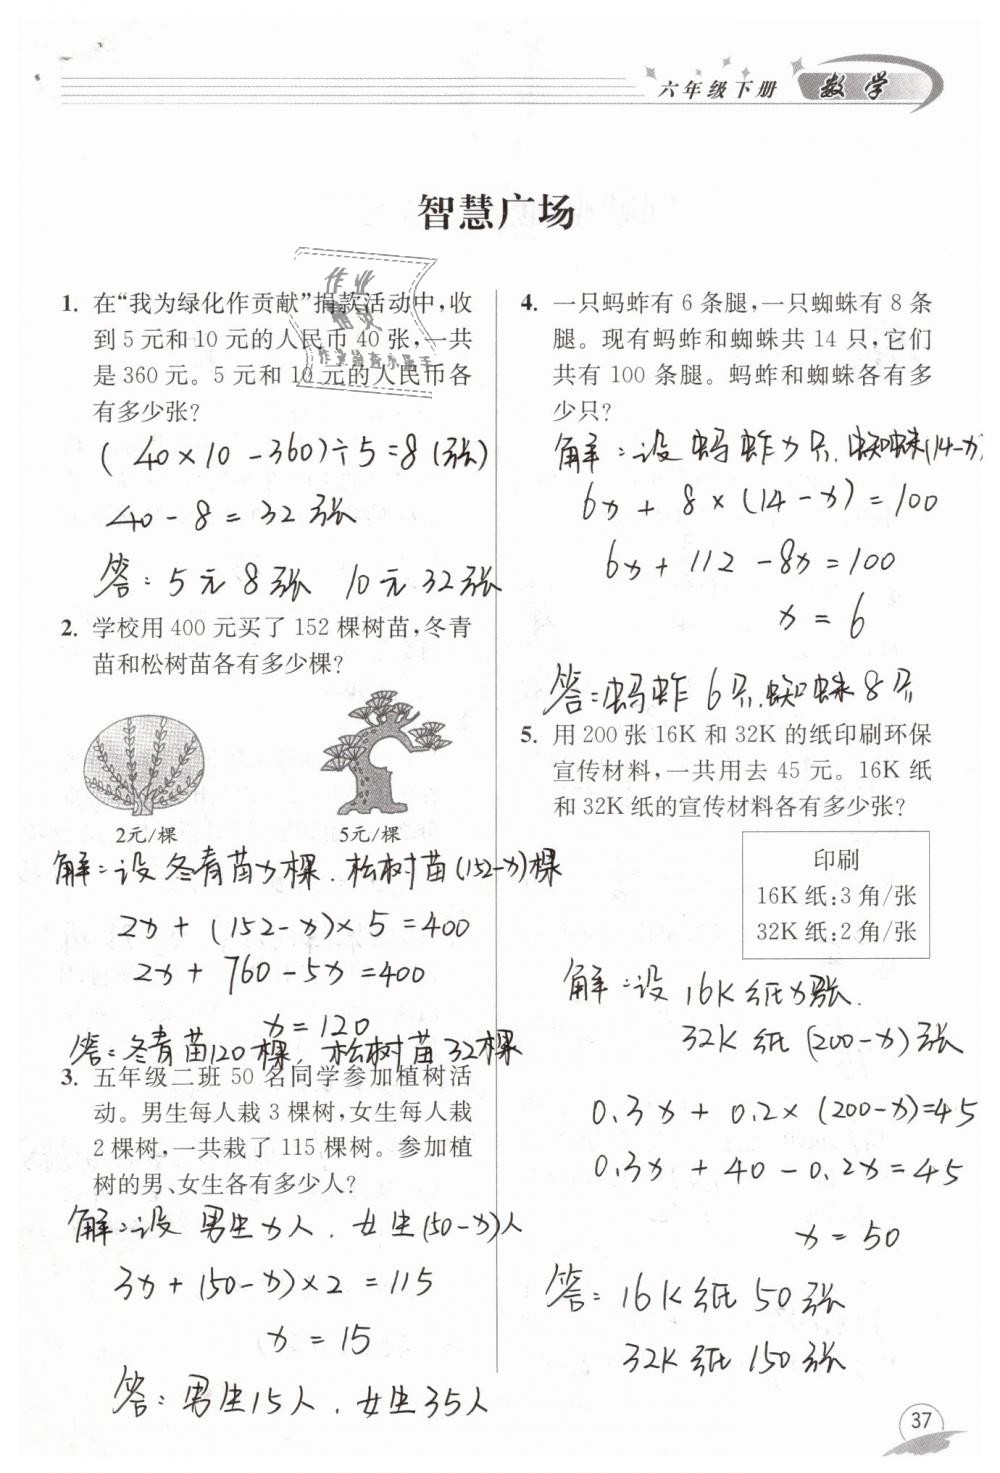 六年级下册 数学
智慧广场
1. 在“我为绿化作贡献”捐款活动中,收
到 5 元和 10 元的人民币 40 张,一共
是 360 元。5 元和 10 元的人民币各
有多少张?
(40×10-360)÷5=8(张)
40-8=32张
答:5元8张 10元32张
2. 学校用 400 元买了 152 棵树苗,冬青
苗和松树苗各有多少棵?
2元/棵 5元/棵
解:设冬青苗x棵.松树苗(152-x)棵
2x+(152-x)×5=400
2x+760-5x=400
x=120
答:冬青苗120棵,松树苗32棵
3. 五年级二班 50 名同学参加植树活
动。男生每人栽 3 棵树,女生每人栽
2 棵树,一共栽了 115 棵树。参加植
树的男、女生各有多少人?
解:设男生x人.女生(50-x)人
3x+(50-x)×2=115
x=15
答:男生15人.女生35人
4. 一只蚂蚱有 6 条腿,一只蜘蛛有 8 条
腿。现有蚂蚱和蜘蛛共 14 只,它们
共有 100 条腿。蚂蚱和蜘蛛各有多
少只?
解:设蚂蚱x只.蜘蛛(14-x)
6x+8×(14-x)=100
6x+112-8x=100
x=6
答:蚂蚱6只.蜘蛛8只
5. 用 200 张 16K 和 32K 的纸印刷环保
宣传材料,一共用去 45 元。16K 纸
和 32K 纸的宣传材料各有多少张?
印刷
16K 纸:3 角/张
32K 纸:2 角/张
解:设16K纸x张.
32K纸(200-x)张
0.3x+0.2×(200-x)=45
0.3x+40-0.2x=45
x=50
答:16K纸50张
32K纸150张
37